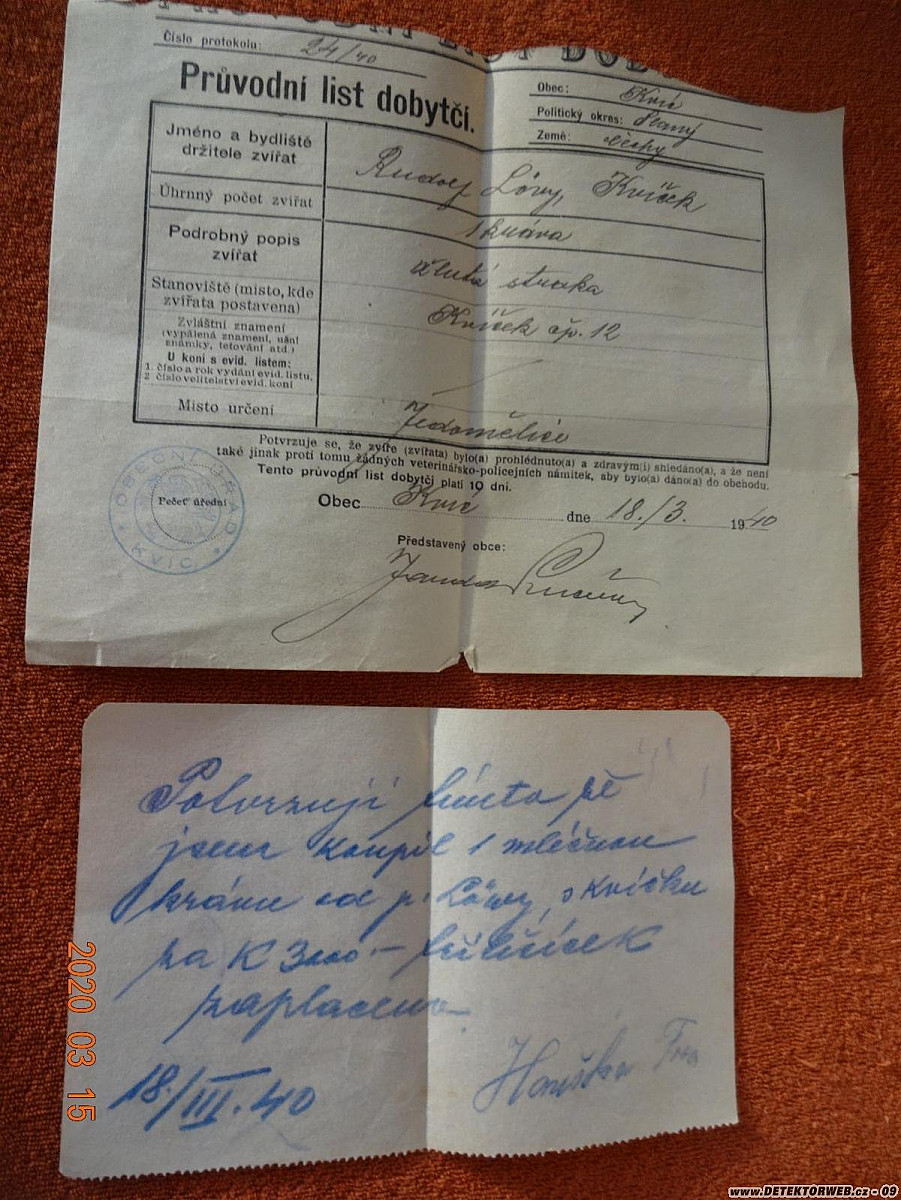 Číslo protokolu: 24/40
Průvodní list dobytčí.
Obec: Kvíc
Politický okres: Slaný
Země: Čechy
Jméno a bydliště
držitele zvířat
Rudolf Löwy, Kvíček
Úhrnný počet zvířat
1 kráva
Podrobný popis
zvířat
žlutá straka
Stanoviště (místo, kde
zvířata postavena)
Kvíček čp. 12
Zvláštní znamení
(vypálená znamení, ušní
známky, tetování atd.)
U koní s evid. listem:
1. číslo a rok vydání evid. listu,
2 číslo velitelství evid. koní
Místo určení
Jedomělice
Potvrzuje se, že zvíře (zvířata) bylo(a) prohlédnuto(a) a zdravým(i) shledáno(a), a že není
také jinak proti tomu žádných veterinářsko-policejních námitek, aby bylo(a) dáno(a) do obchodu.
Tento průvodní list dobytčí platí 10 dní.
OBECNÍ ÚŘAD
KVÍC
Pečeť úřední
Obec Kvíc dne 18./3. 1940
Představený obce:
Potvrzuji tímto že
jsem koupil 1 mléčnou
krávu od p. Löwy, z Kvíčku
za K 3000 – třitisíce K
zaplaceno
18./III. 40
2020 03 15
www.DETEKTORWEB.cz - 09